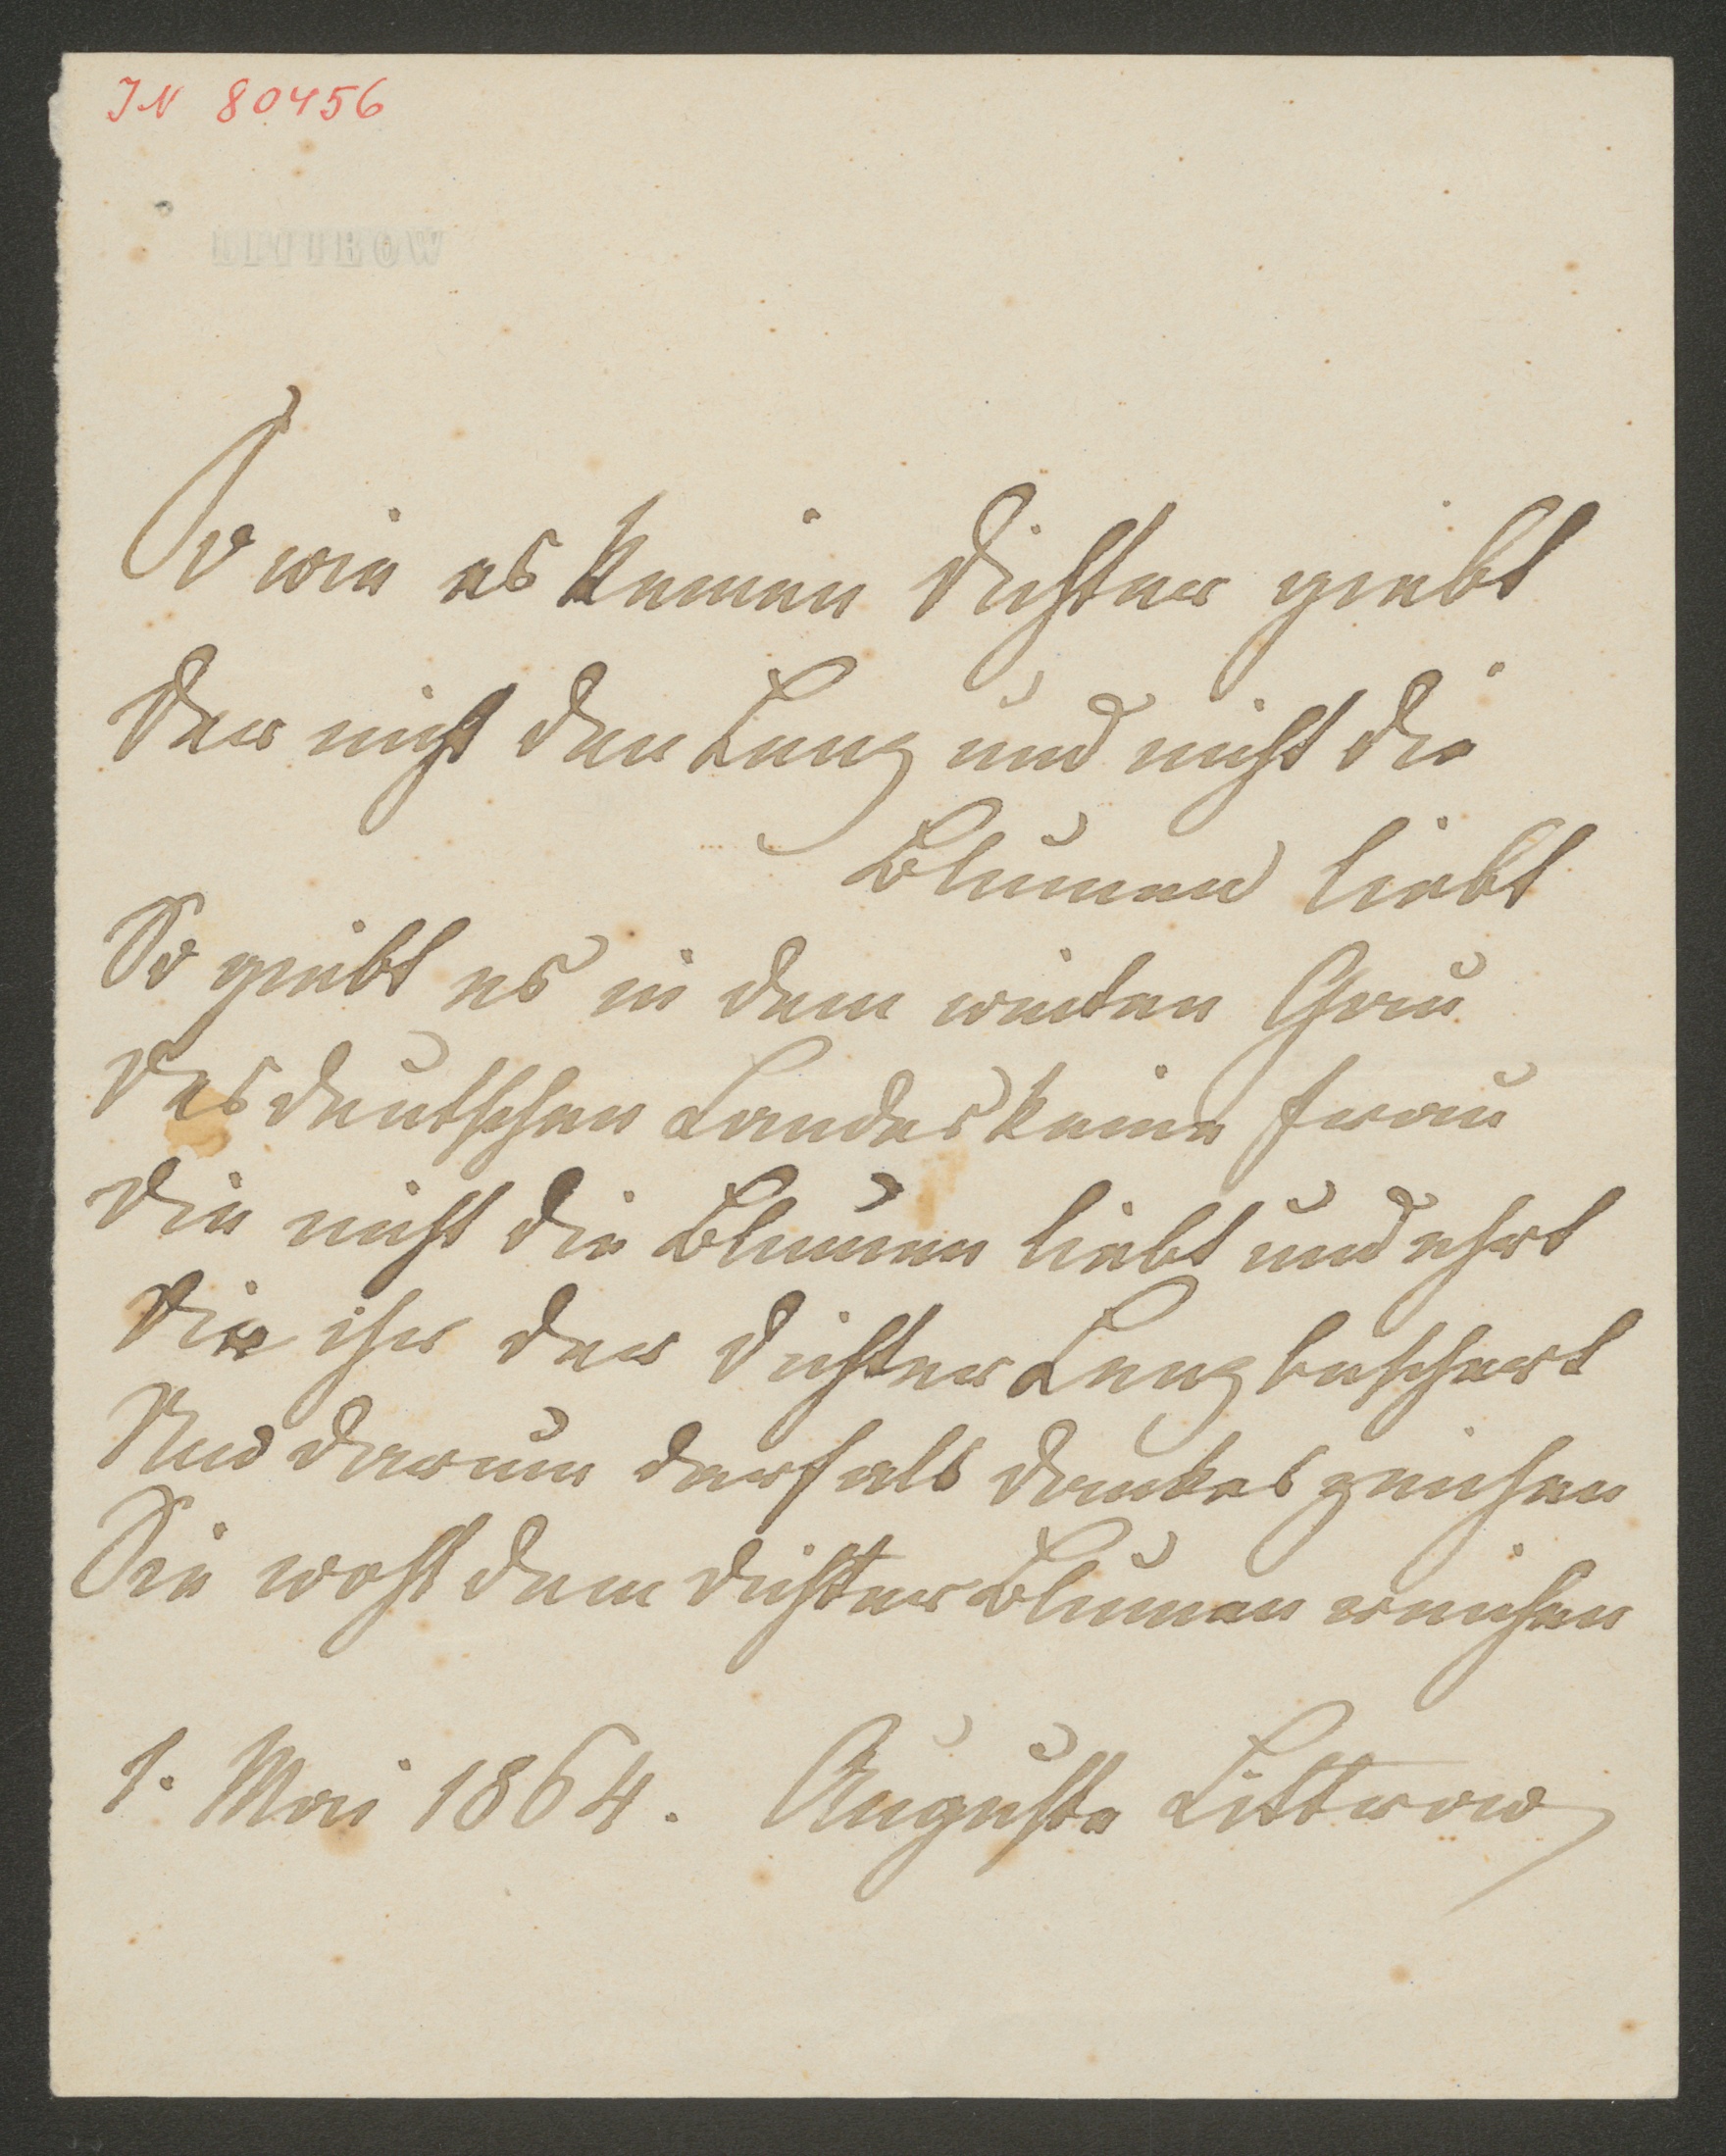 IN 80456
LITTROW
So wie es keinen Dichter giebt
Der nicht den Lenz und nicht die
Blumen liebt
So giebt es in dem weiten Gau
Des deutschen Landes keine Frau
Die nicht die Blumen liebt und ehrt
Die ihr der Dichter Lenz beschert
Und darum darf als Dankeszeichen
Sie wohl dem Dichter Blumen reichen
1. Mai 1864. Auguste Littrow